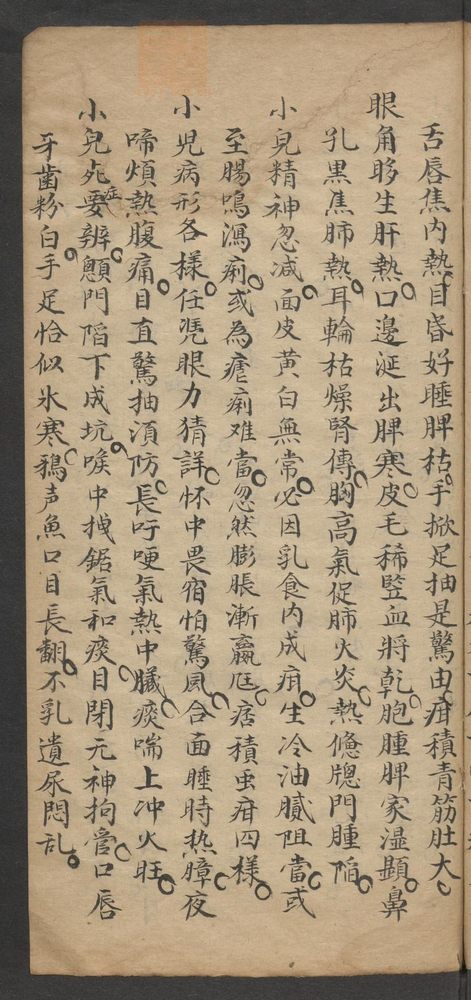 舌唇焦内熱。目昏好睡脾枯。手掀足抽是驚由。疳積青筋肚大。
眼角眵生肝熱。口邊涎出脾寒。皮毛稀竪血將乾。胞腫脾家湿顕。鼻
孔黒焦肺熱。耳輪枯燥腎傳。胸高氣促肺火炎。熱憸牎門腫陷。
小兒精神忽减。面皮黄白無常。必因乳食内成疳。生冷油膩阻當。或
至腸鳴瀉痢。或為瘧痢难當。忽然膨脹漸羸尫。痞積虫疳四樣。
小児病形各樣。任凭眼力猜詳。怀中畏宿怕驚風。合面睡時热膞。夜
啼煩熱腹痛。目直驚抽湏防。長吁哽氣熱中臟。痰喘上冲火旺。
小兒死症要辨。顖門陷下成坑。喉中拽鋸氣和痰。目閉元神拘管。口唇
牙齒粉白。手足恰似氷寒。鴉声魚口目長翻。不乳遺尿悶乱。